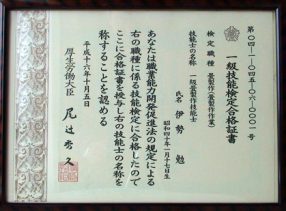 第〇四-一-〇四五-〇六-〇〇〇一号
一級技能検定合格証書
検定職種 畳製作(畳製作作業)
技能士の名称 一級畳製作技能士
氏名 伊勢 勉
昭和四十年一月十七日生
あなたは職業能力開発促進法の規定による
右の職種に係る技能検定に合格したので
ここに合格証書を授与し右の技能士の名称を
称することを認める
平成十六年十月五日
厚生労働大臣 尾辻秀久